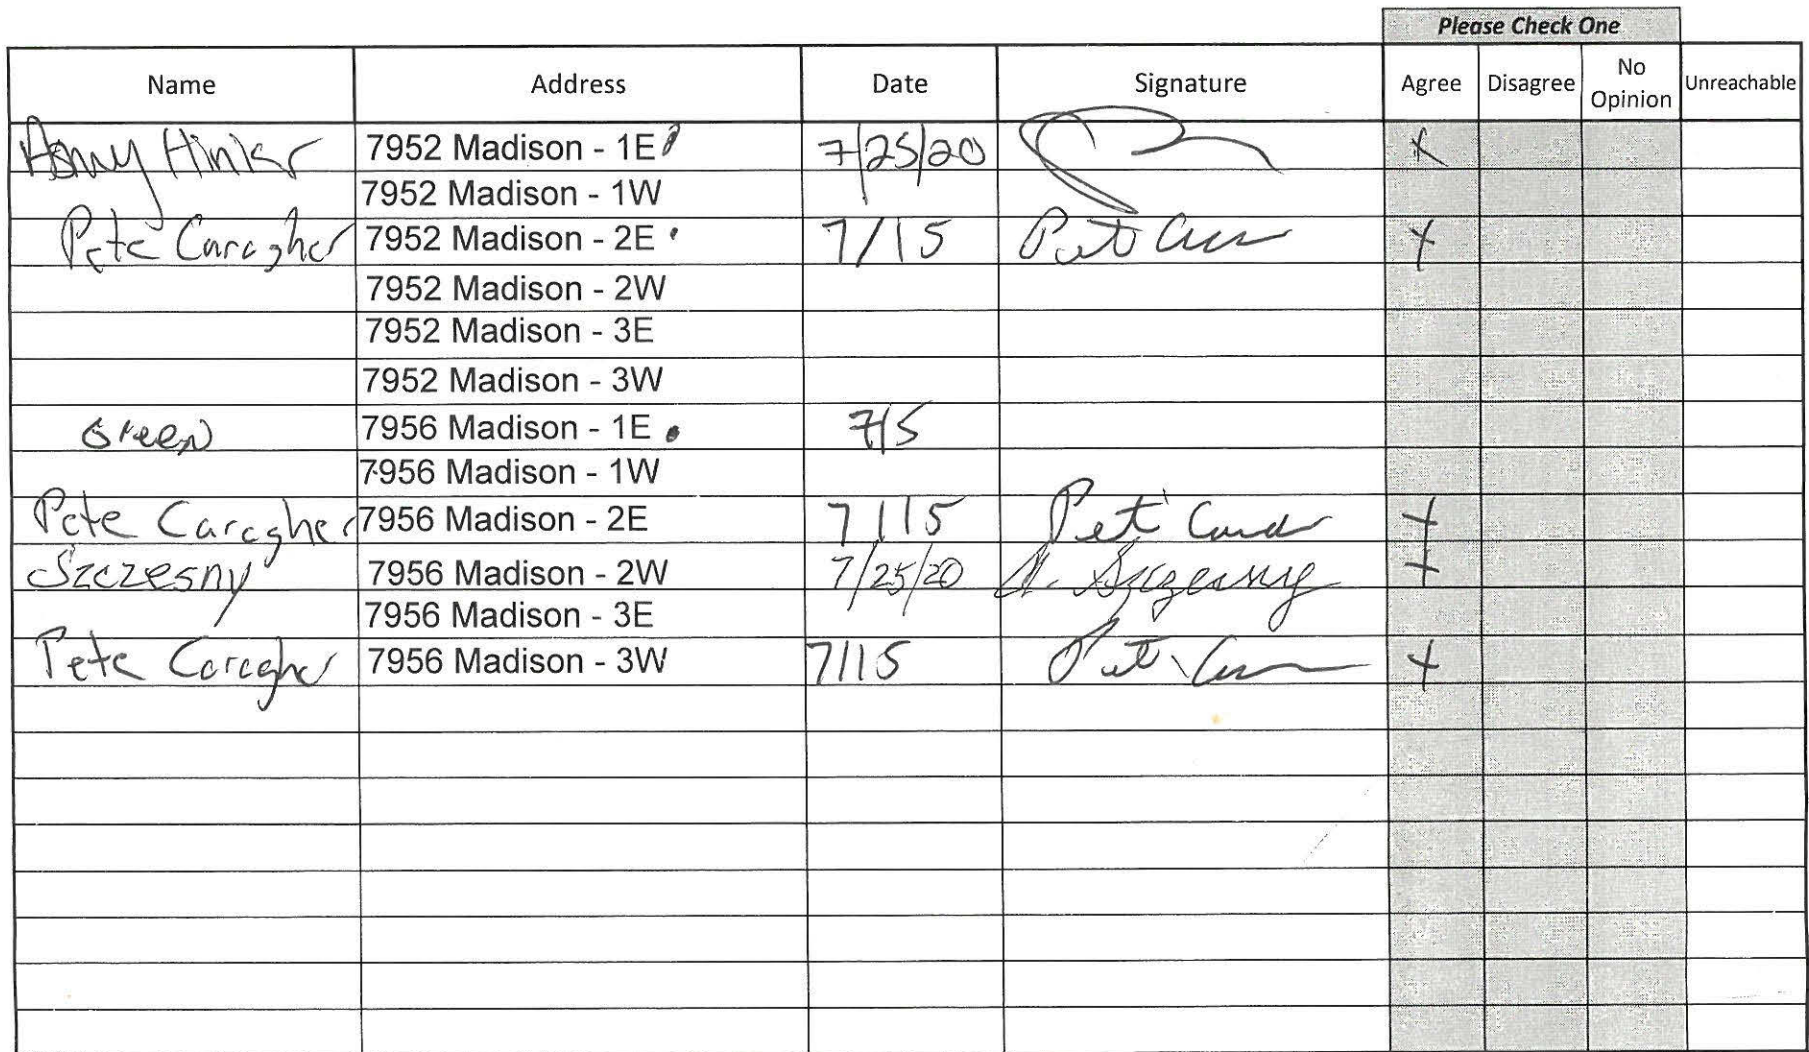 Please Check One
Name Address Date Signature Agree Disagree No Opinion Unreachable
7952 Madison - 1E 7/25/20 X
7952 Madison - 1W
Pete Caragher 7952 Madison - 2E 7/15 X
7952 Madison - 2W
7952 Madison - 3E
7952 Madison - 3W
Green 7956 Madison - 1E 7/5
7956 Madison - 1W
Pete Caragher 7956 Madison - 2E 7/15 X
Szczesny 7956 Madison - 2W 7/25/20 X
7956 Madison - 3E
Pete Caragher 7956 Madison - 3W 7/15 X